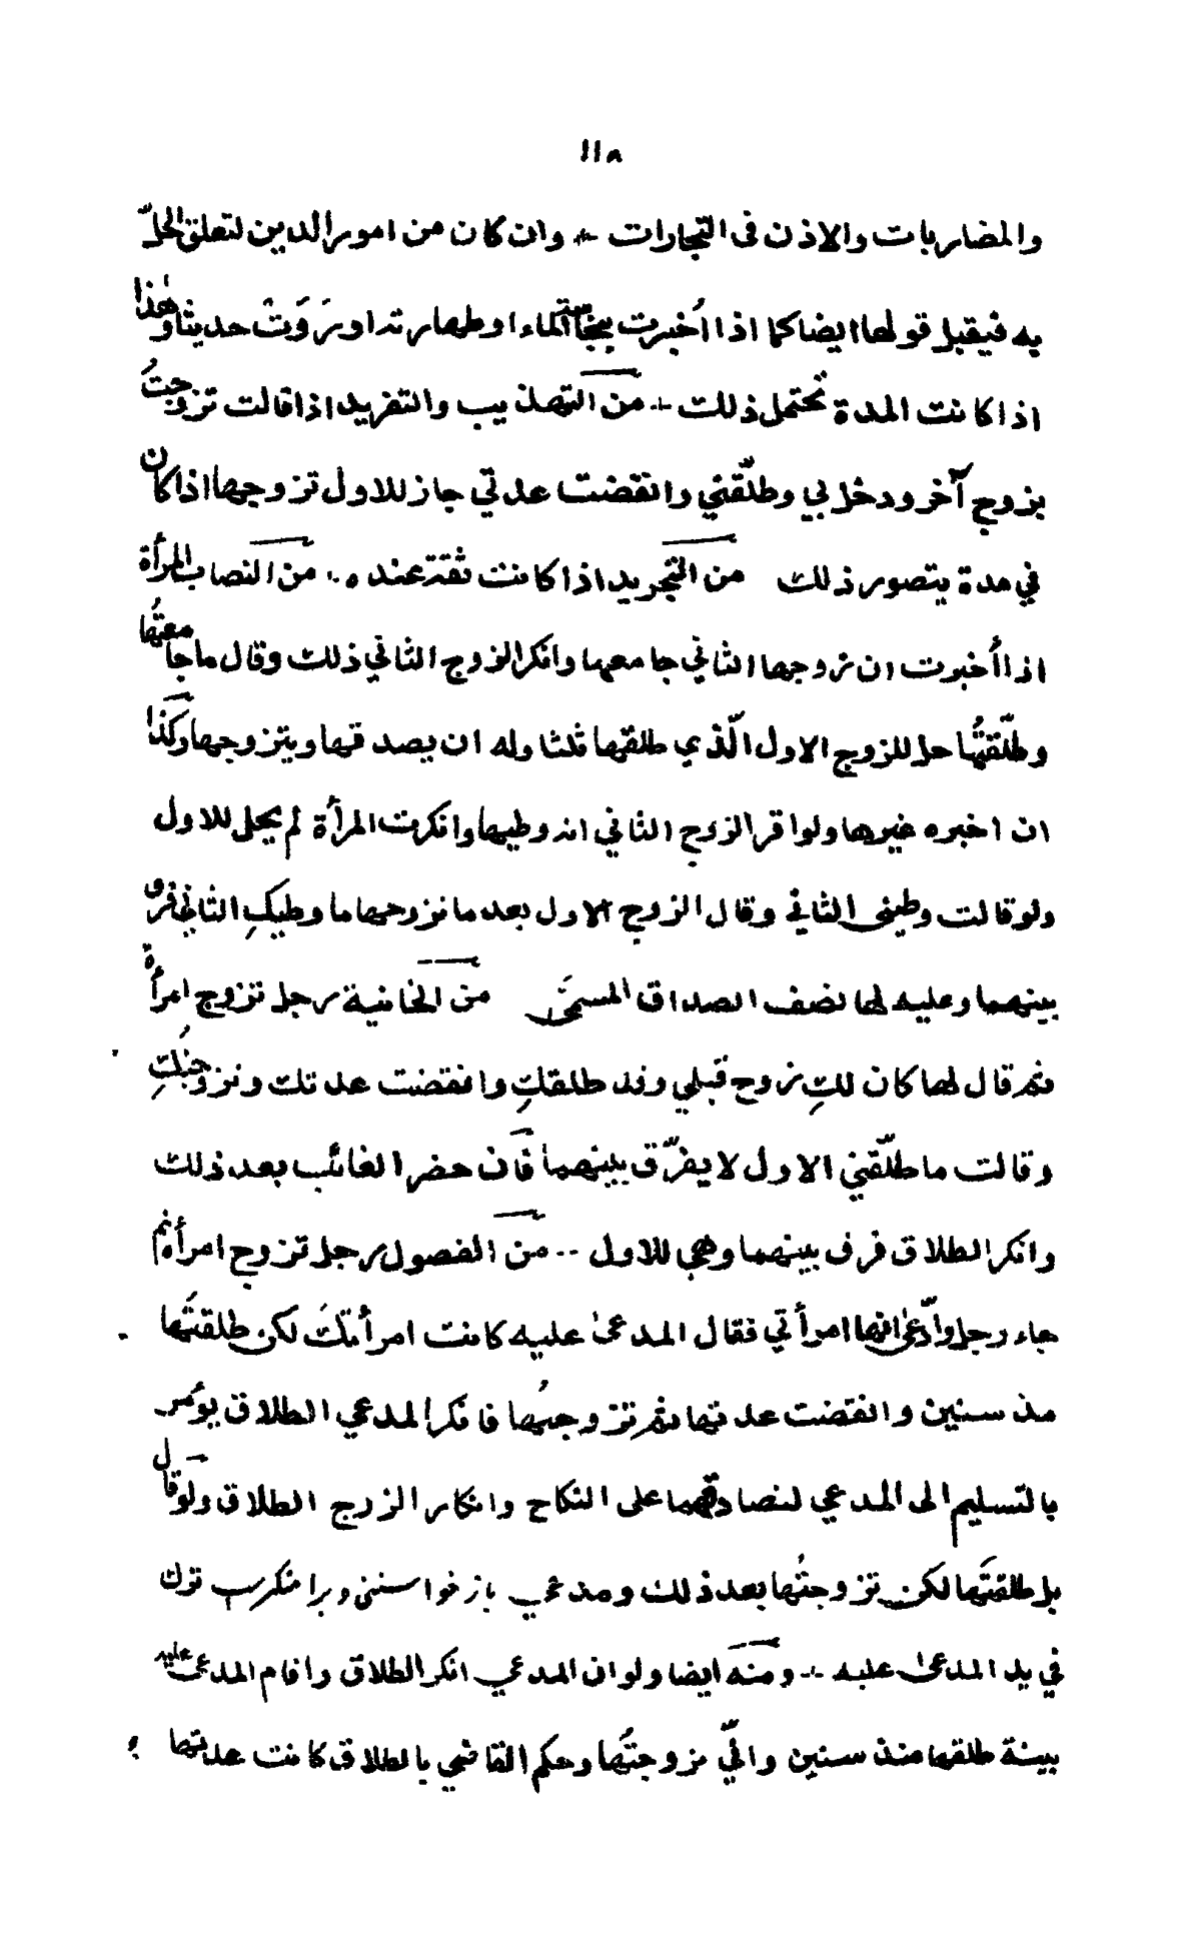 ١١٨
والمضاربات والاذن فى التجارات ؞ وان كان من امور الدين لتعلق الحلّ
به فيقبل قولها ايضا كما اذا اُخبرت بنجاسة الماء او طهارته او رَوَتْ حديثا وهذا
اذا كانت المدة تحتمل ذلك ؞ من التهذيب والتفريد اذا قالت تزوجتُ
بزوج آخر ودخل بي وطلّقني وانقضت عدتي جاز للاول تزوجها اذا كان
في مدة يتصور ذلك من التجريد اذا كانت ثقة عنده ؞ من النصاب المرأة
اذا أخبرت ان زوجها الثاني جامعها وانكر الزوج الثاني ذلك وقال ما جامعتُها
وطلّقتُها حل للزوج الاول الّذي طلقها ثلثا وله ان يصدقها ويتزوجها وكذا
ان اخبره غيرها ولو اقر الزوج الثاني انه وطيها وانكرت المرأة لم يحل للاول
ولو قالت وطينى الثاني وقال الزوج الاول بعد ما تزوجها ما وطيكِ الثاني فرق
بينهما وعليه لها نصف الصداق المسمَّى من الخانية رجل تزوج امرأة
ثم قال لها كان لكِ زوج قبلي وقد طلقكِ وانقضت عدتك وتزوجتكِ
وقالت ما طلّقني الاول لا يفرّق بينهما فان حضر الغائب بعد ذلك
وانكر الطلاق فرق بينهما وهي للاول ؞ من الفصول رجل تزوج امرأة ثم
جاء رجل وادّعى انها امرأتي فقال المدعى عليه كانت امرأتكَ لكن طلقتَها
مذ سنين وانقضت عدتها ثم تزوجتُها فانكر المدعي الطلاق يؤمر
بالتسليم الى المدعي لتصادقهما على النكاح وانكار الزوج الطلاق ولو قال
بل طلقتَها لكن تزوجتُها بعد ذلك ومدعي باز خواستنى و برا منكرست ترك
في يد المدعى عليه ؞ ومنه ايضا ولو ان المدعي انكر الطلاق واقام المدعى عليه
بينة طلقها منذ سنين وانّي تزوجتُها وحكم القاضي بالطلاق كانت عدتها